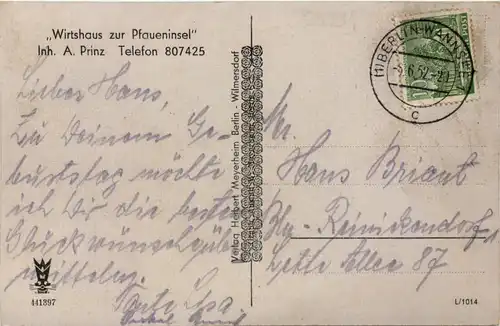 „Wirtshaus zur Pfaueninsel"
Inh. A. Prinz Telefon 807425
Lieber Hans,
Zu Deinem Ge-
burtstag möchte
ich Dir die besten
Glückwünsche über-
mitteln.
Tante
441397
Verlag Herbert Meyerheim Berlin - Wilmersdorf
(1) BERLIN-WANNSEE
6.52
c
Hans Briant
Bln-Reinickendorf
Lette Allee 87
L/1014